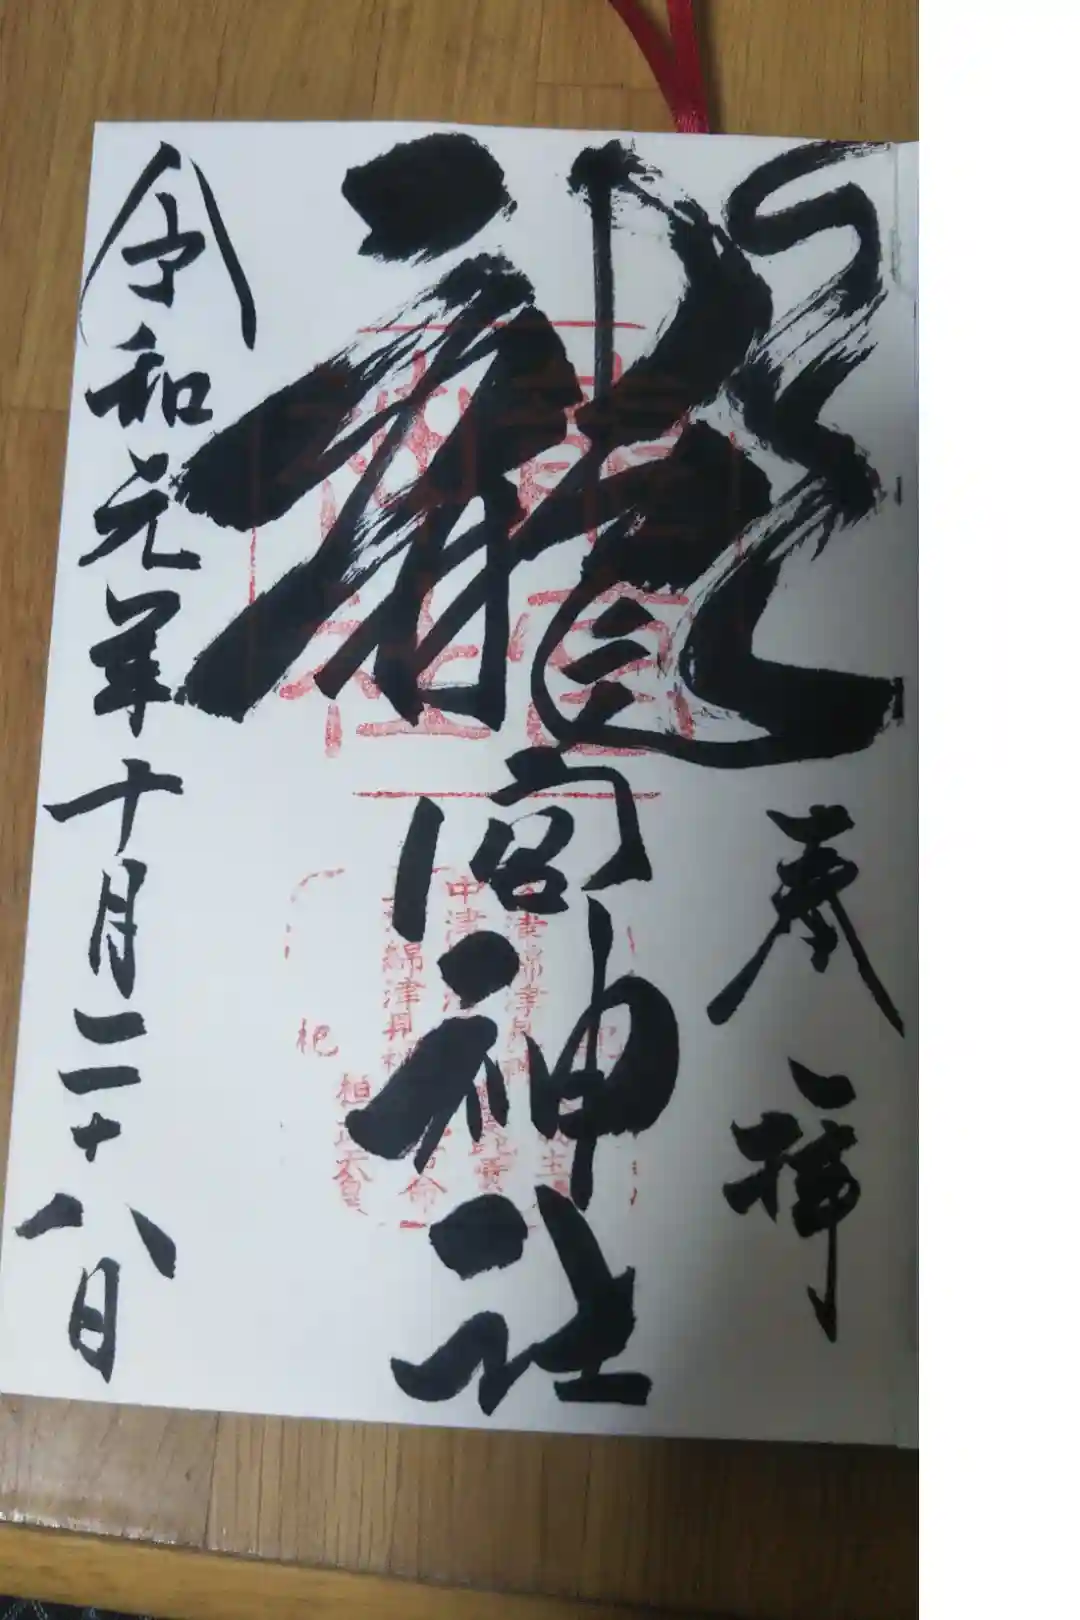 奉拝
龍宮神社
令和元年十月二十八日
中津
綿津見神
桓武天皇